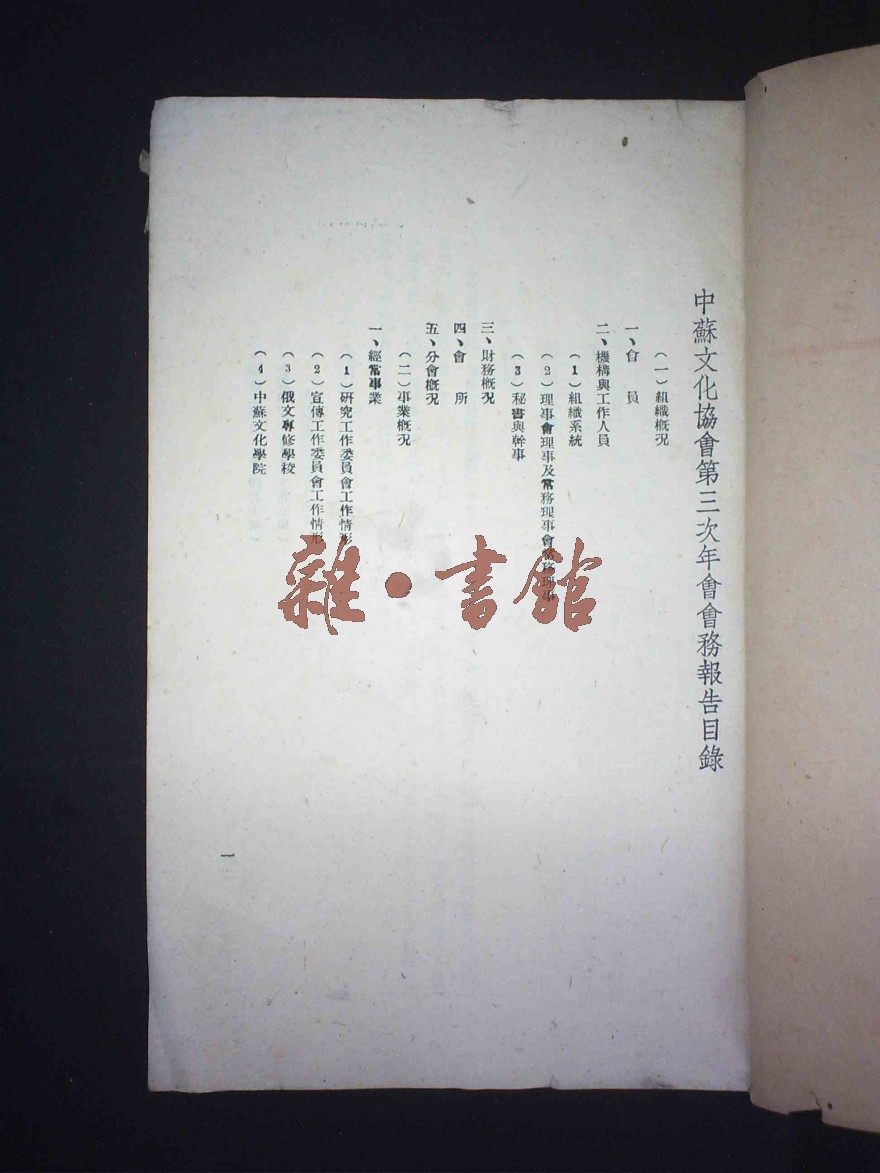 中蘇文化協會第三次年會會務報告目錄
（一）組織概況
一、會　員
二、機構與工作人員
（1）組織系統
（2）理事會理事及常務理事會常務理事
（3）秘書與幹事
三、財務概況
四、會　所
五、分會概況
（二）事業概況
一、經常事業
（1）研究工作委員會工作情形
（2）宣傳工作委員會工作情形
（3）俄文專修學校
（4）中蘇文化學院
一
雜·書館